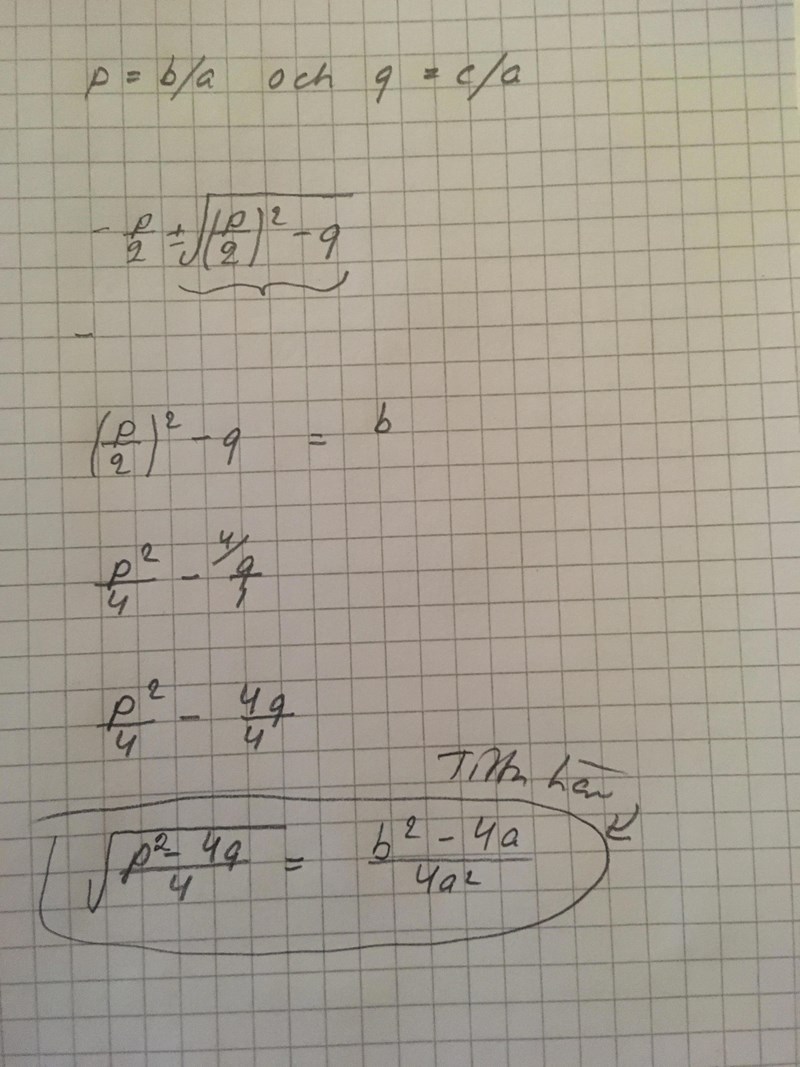 p = b/a och q = c/a
- p/2 ± √((p/2)² - q)
-
(p/2)² - q = b
p²/4 - 4/ q/1
p²/4 - 4q/4
Titta här
√((p² - 4q)/4) = (b² - 4a)/(4a²)